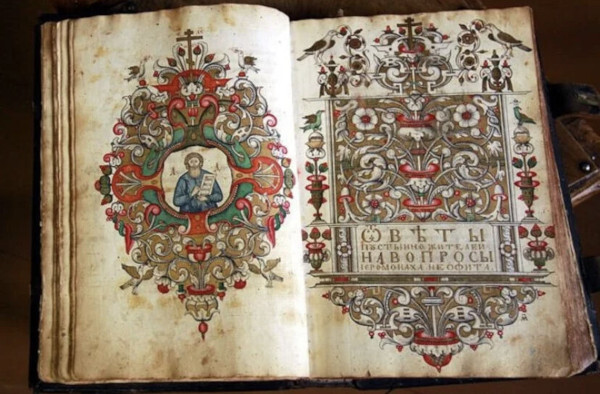 ѾВѢТЫ
ПУСТЫННОЖИТЕЛЕВИ
НАВОПРОСЫ
ІЕРОМОНАХА НЕОФИТА